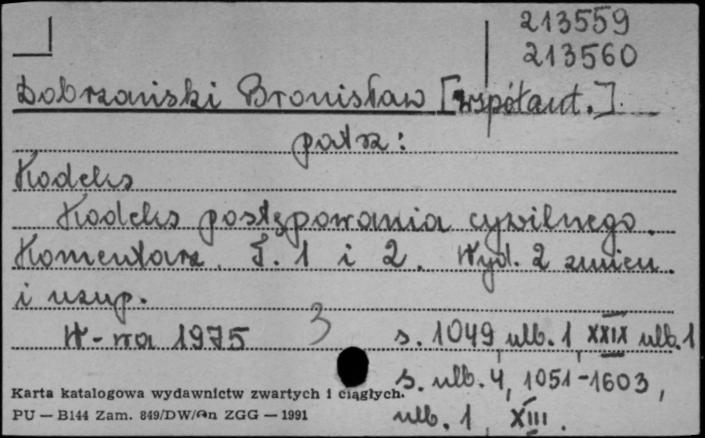 213559
213560
Dobrzański Bronisław [współaut.]
patrz:
Kodeks
Kodeks postępowania cywilnego.
Komentarz. T. 1 i 2. Wyd. 2 zmien.
i uzup.
W-wa 1975 3 s. 1049, ulb. 1 XXIX ulb. 1
s. ulb. 4, 1051-1603,
Karta katalogowa wydawnictw zwartych i ciągłych.
ulb. 1, XIII.
PU — B144 Zam. 849/DW/ ZGG — 1991